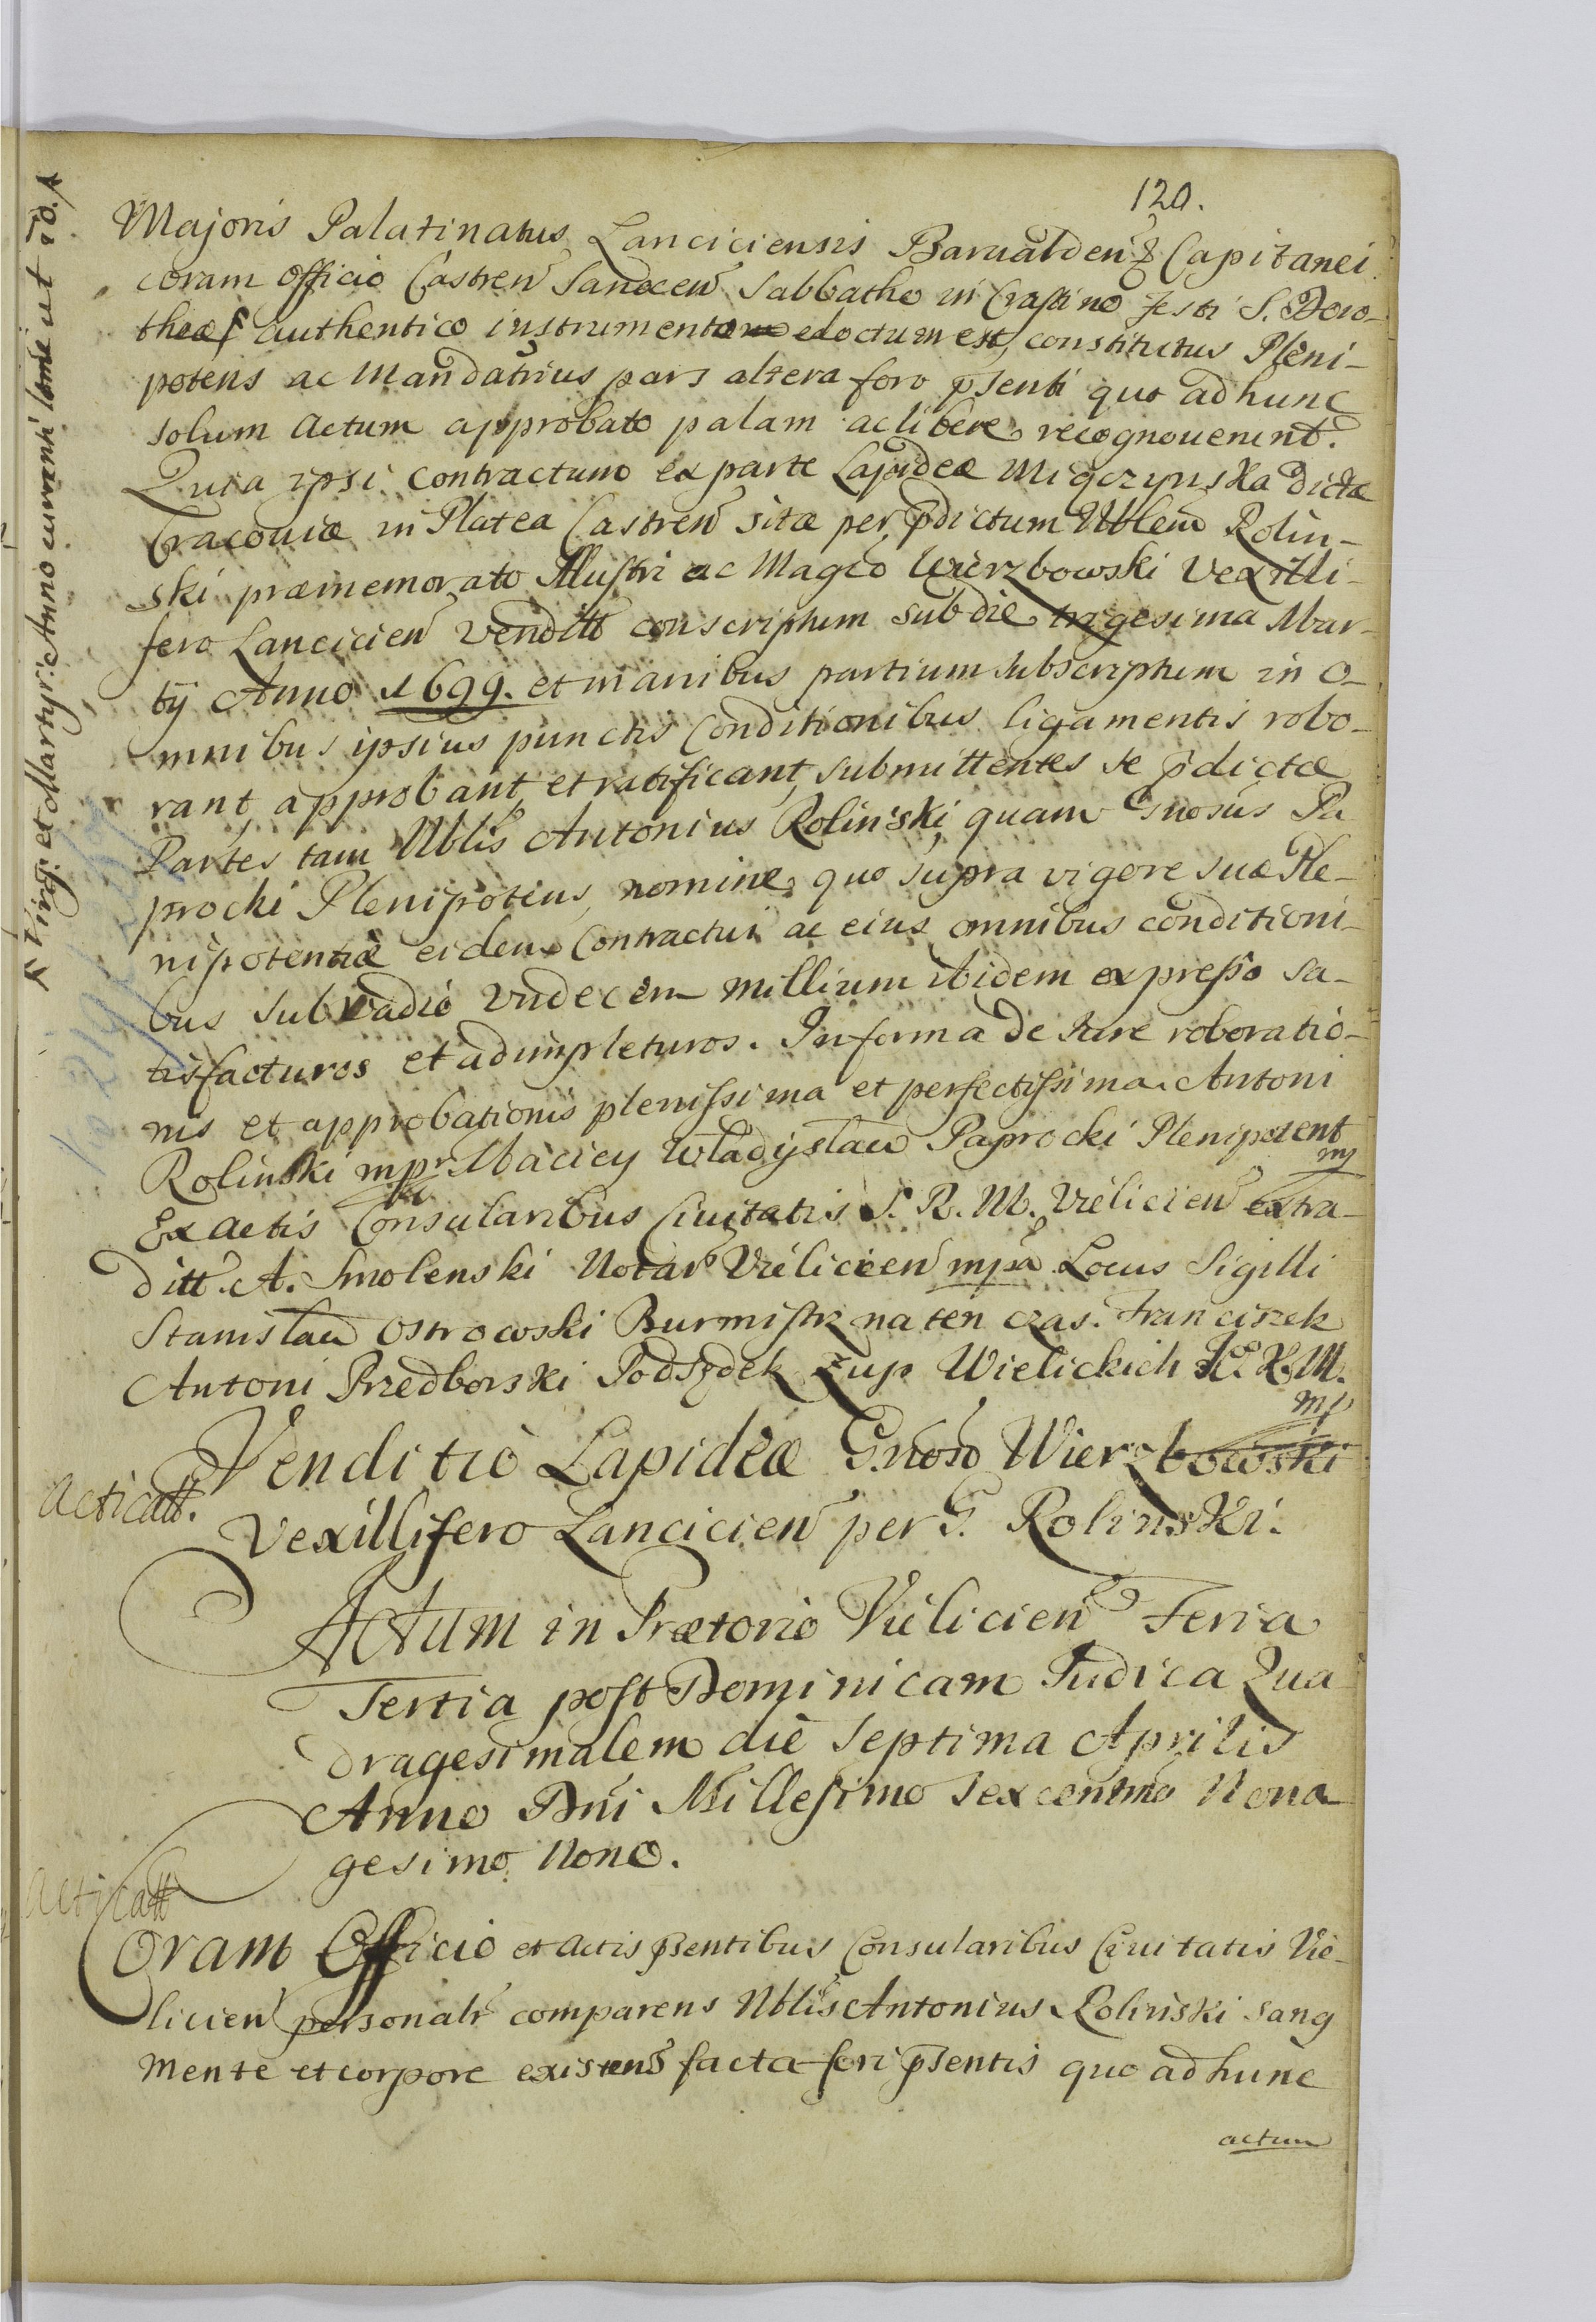 120.
Majoris Palatinatus Lanciciensis Barwalden: Capitanei
coram Officio Castren Sandecen Sabbatho in Crastino Festi S. Doro-
theæ authentico instrumento edoctum est, constitutus Pleni-
potens ac Mandatrius pars altera foro p̄senti quo ad hunc
solum actum approbato palam ac libere recognoverunt.
Quia ipsi contractum ex parte Lapideæ Miączynska dictæ
Cracoviæ in Platea Castren sitæ per p̄dictum Nblem Rolin-
ski præmemorato Illustri ac Magco Wierzbowski Vexilli-
fero Lancicien vendit conscriptum sub die trigesima Mar-
tij Anno 1699. et manibus partium subscriptum in o-
mnibus ipsius punctis conditionibus ligamentis robo-
rant, approbant, et ratificant, submittentes se p̄dictæ
Partes tam Nblis Antonius Rolinski, quam Gnosus Pa
procki Plenipotens, nomine quo supra vigore suæ Ple-
nipotentiæ eidem Contractui ac eius omnibus conditioni-
bus sub vadio undecem millium ibidem expresso sa-
tisfacturos et adimpleturos. In forma de Iure roboratio-
nis et approbationis plenissima et perfectissima. Antoni
Rolinski mpr Maciey Władysław Paprocki Plenipotent
mp
Ex actis Consularibus Civitatis S. R. M. Vielicien extra-
ditt. A. Smolenski Notar Vielicien mpa Locus Sigilli
Stanisław Ostrowski Burmistrz na ten czas. Franciszek
Antoni Przedborski Podsędek Żup Wielickich J. K. M.
mp
Venditio Lapideæ Gnoso Wierzbowski
Acticatt.
Vexillifero Lancicien per G. Rolinski.
Actum in Prætorio Vielicien Feria
Tertia post Dominicam Judica Qua
dragesimalem die Septima Aprilis
Anno Dni Millesimo Sexcentmo Nona
gesimo Nono.
Acticatt
Coram Officio et Actis p̄sentibus Consularibus Civitatis Vie-
licien personalr comparens Nblis Antonius Rolinski sang
mente et corpore existens facta fori p̄sentis quo ad hunc
actum
Virg: et Martyr: Anno currenti